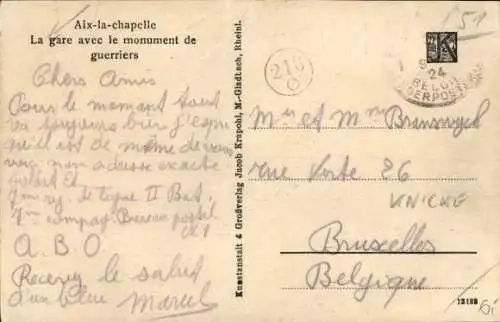 Aix-la-chapelle
La gare avec le monument de
guerriers
Chers Amis
Pour le moment tout
va toujours bien j'espère
qu'il est de même de vous
mon adresse exacte
soldat
de ligne II Bat.
compag. Bureau postal
A.B.O
Recevez le salut
d'un bleu Marcel
Kunstanstalt & Großverlag Jacob Krapohl, M.-Gladbach, Rheinl.
216
O
K
24
BELG
151
Mr et Mme
rue Verte 26
KNICKE
Bruxelles
Belgique